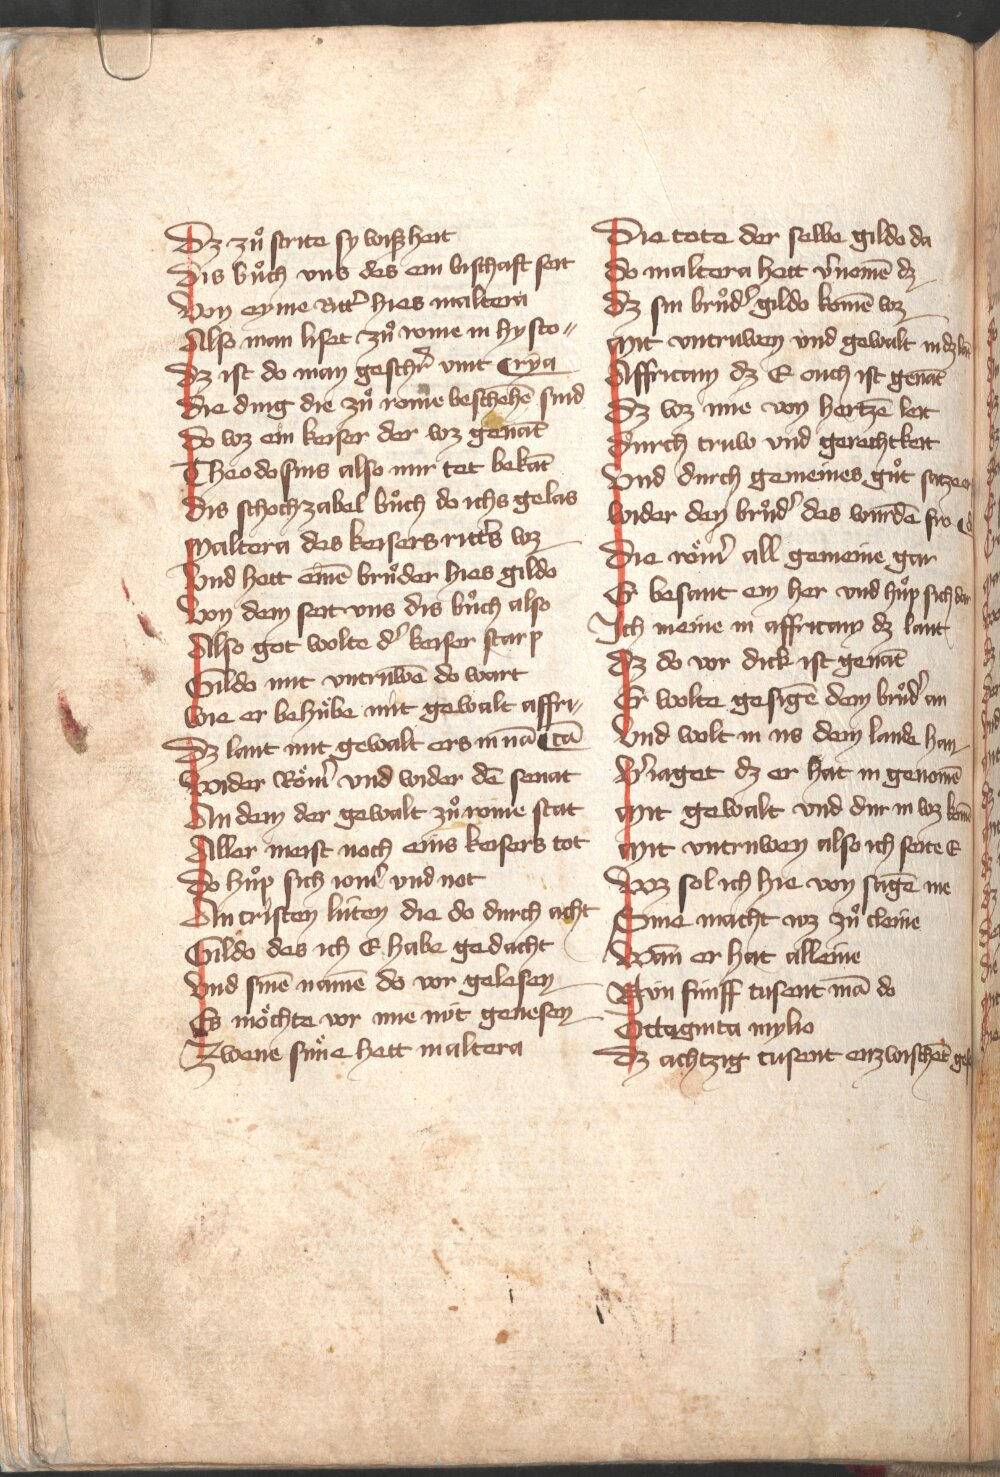 Dz zuͦ strite sy wiszheit
Dis buͦch vns des ein bischaft seit
Von eyme ritt̓ hies maltera
Also man liset zuͦ rome in hysto〃
Dz ist do man geschr̓ vint ¶ rÿa
Die ding die zuͦ rome beschehē sind
Do wz ein keiser der wz genāt
Theodosius also mir tet bekāt
Dis schochzabel buͦch do ichs gelas
Maltera des keisers ritt̓s wz
Vnd hett einē bruͦder hies gildo
Von dem seit vns dis buͦch also
Also got wolte d̓ keiser starp
Gildo mit vntruwē do wart
Wie er behuͤbe mit gewalt affri〃
Dz lant mit gewalt ers in nā ¶ cā
Wider Roͤm̓ vnd wider dē senat
An dem der gewalt zuͦ rome stat
Aller meist noch eins keisers tot
Do huͦp sich iom̓ vnd not
An cristen luten die do durch acht
Gildo des ich E habe gedacht
Vnd sinē namē do vor gelesen
Es moͤchte vor ime nut genesen
Zwene suͤne hett maltera
Die tote der selbe gildo da
do maltera hett v̓nomē dz
Dz sin bruͦd̓ gildo komē wz
Mit vntruwen vnd gewalt in dz lāt
Affricam dz E ouch ist genāt
Dz wz ime von hertzē leit
Durch truw vnd gerechtkeit
Vnd durch gemeines guͦt satze er
Wider den bruͦd̓ des wurdē fro
Die roͤm̓ all gemeine gar
Er besant ein her vnd huͦp sich dar
Ich meine in affricam dz lant
Dz do vor dick ist genāt
Er wolte gesigē dem bruͦd̓ an
Vnd wolt in us dem lande han
V̓iaget dz er hat in genomē
Mit gewalt vnd dur in wz komē
Mit vntruwen also ich seite E
Wz sol ich hie von sagē me
Sine macht wz zuͦ cleine
Wan er hat alleine
Nun funff tusent mā do
Ottaginta mylio
Dz achtzig tusent enzwischēt